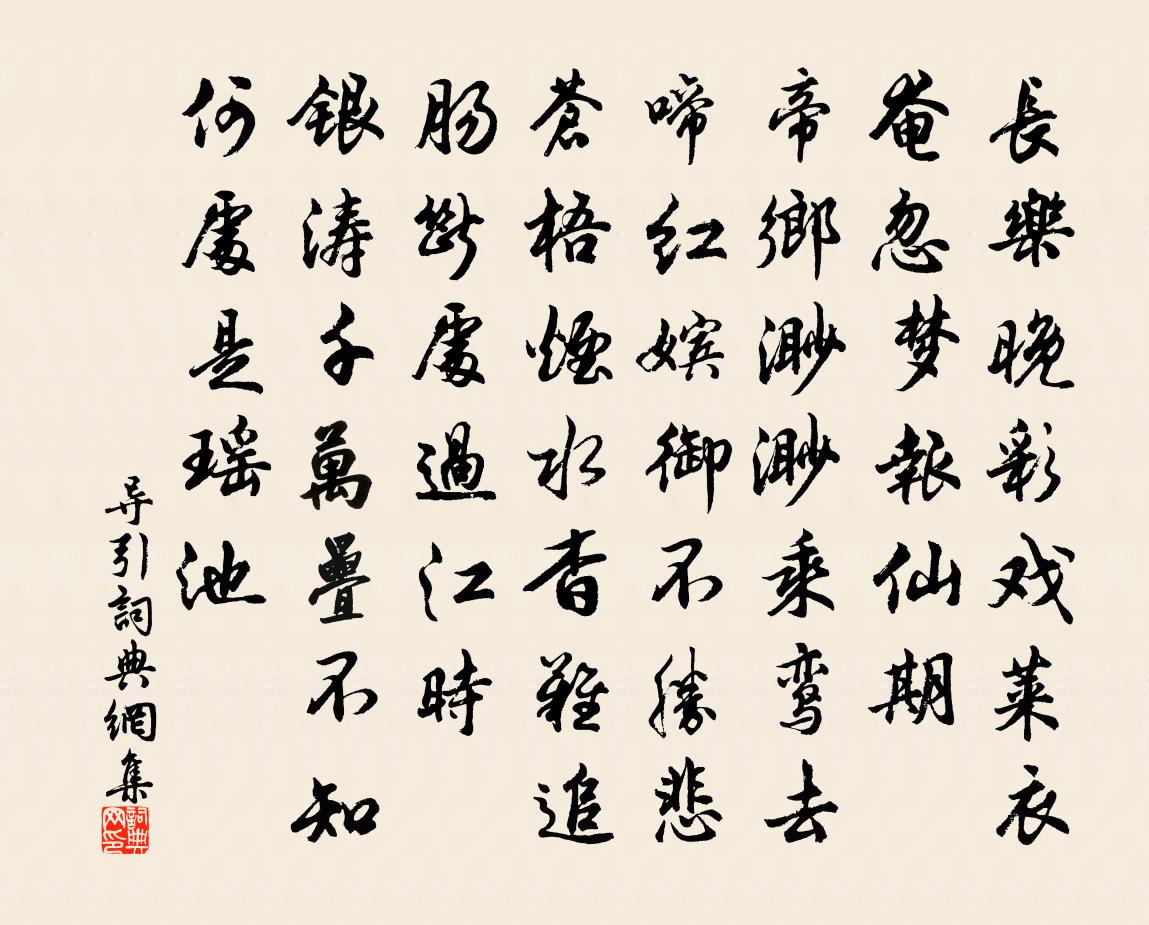 長樂晚彩戏莱衣
奄忽梦報仙期
帝鄉渺渺乘鸾去
啼红嫔御不勝悲
蒼梧煙水杳難追
腸斷處過江時
銀涛千萬疊不知
何處是瑶池
导引詞典網集
詞典网印